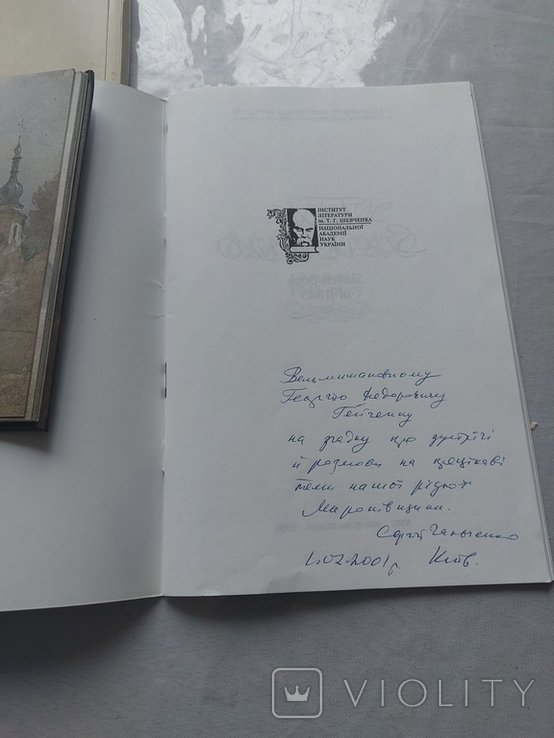 ІНСТИТУТ
ЛІТЕРАТУРИ
ім. Т. Г. ШЕВЧЕНКА
НАЦІОНАЛЬНОЇ
АКАДЕМІЇ
НАУК
УКРАЇНИ
Вельмишановному
Георгію Федоровичу
на згадку про зустрічі
й розмови на цікаві
теми нашої рідної
Сергій Гальченко
1.02.2001 р Київ.
VIOLITY